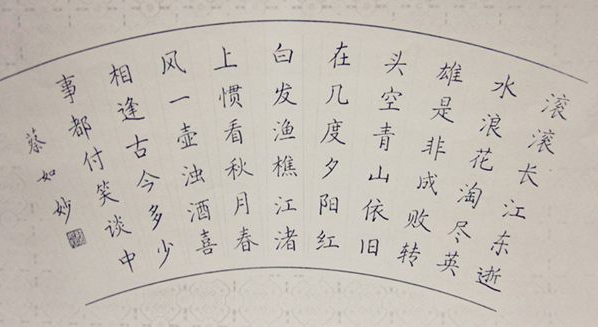 滚滚长江东逝
水浪花淘尽英
雄是非成败转
头空青山依旧
在几度夕阳红
白发渔樵江渚
上惯看秋月春
风一壶浊酒喜
相逢古今多少
事都付笑谈中
蔡如妙